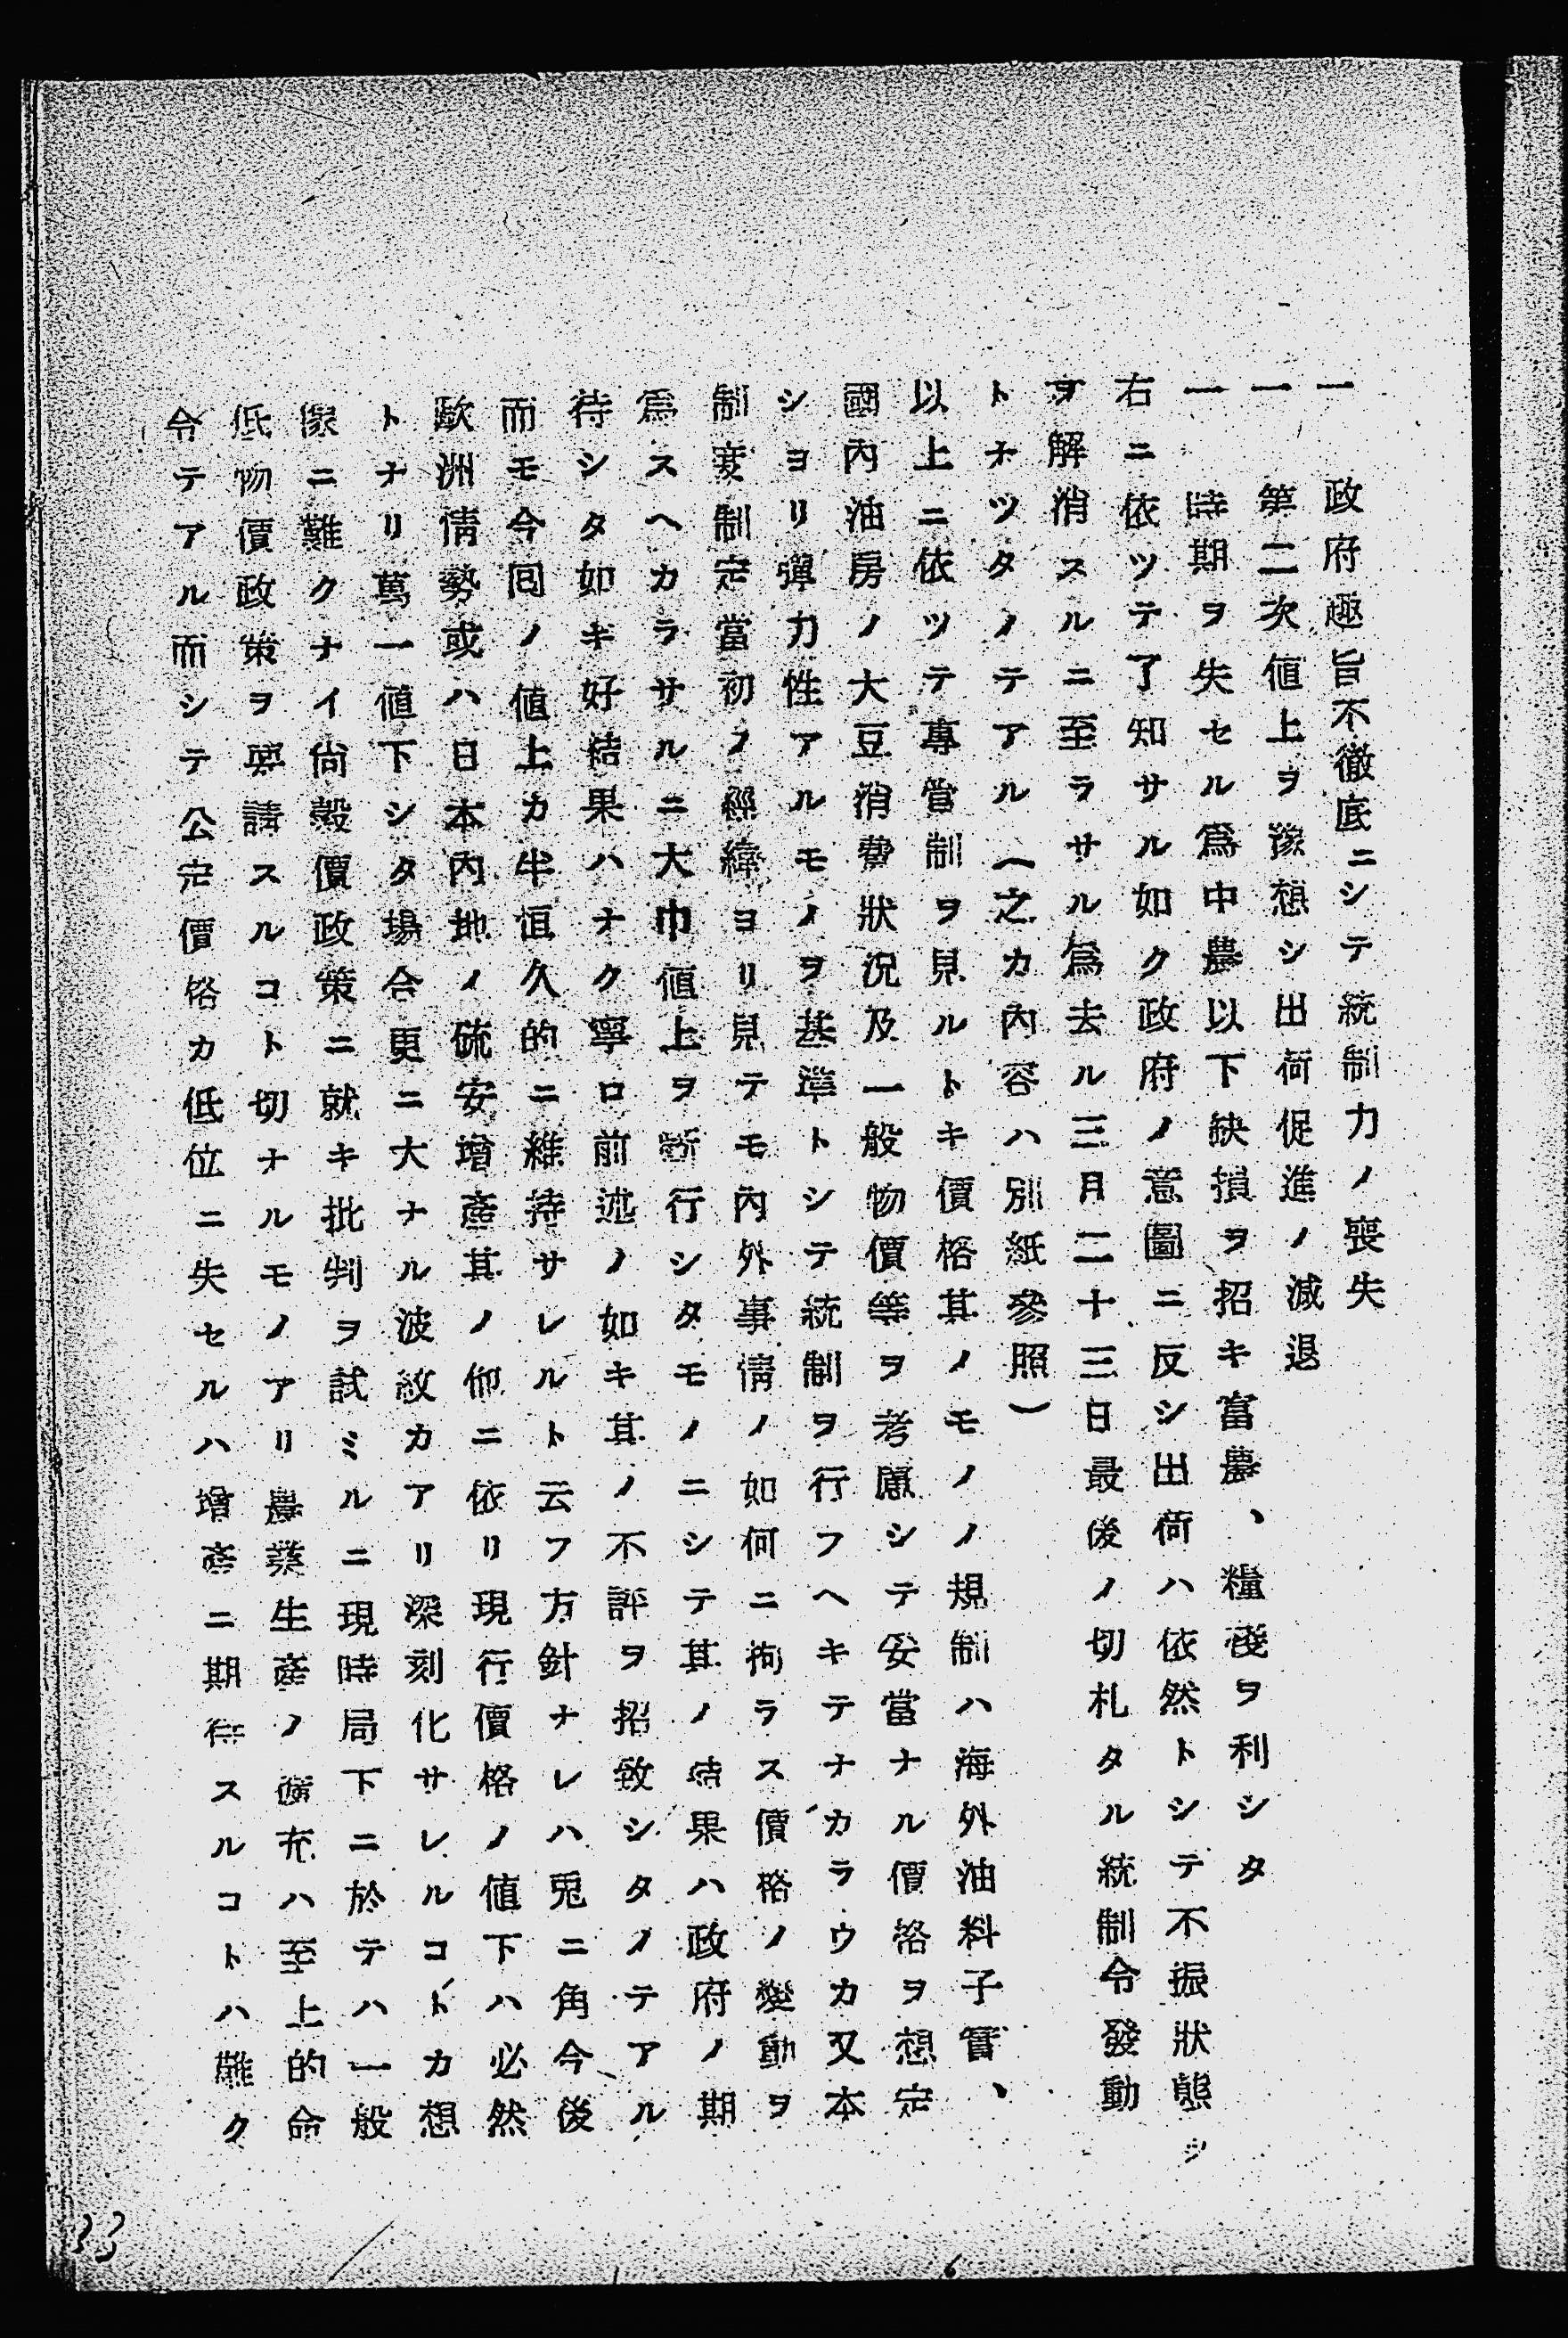 一　政府趣旨不徹底ニシテ統制力ノ喪失
一　第二次値上ヲ豫想シ出荷促進ノ減退
一　時期ヲ失セル爲中農以下缺損ヲ招キ富農、糧棧ヲ利シタ
右ニ依ツテ了知サル如ク政府ノ意圖ニ反シ出荷ハ依然トシテ不振狀態ヲ
解消スルニ至ラサル爲去ル三月二十三日最後ノ切札タル統制令發動
トナツタノテアル（之カ內容ハ別紙參照）
以上ニ依ツテ專管制ヲ見ルトキ價格其ノモノノ規制ハ海外油料子實、
國內油房ノ大豆消費狀況及一般物價等ヲ考慮シテ妥當ナル價格ヲ想定
シヨリ彈力性アルモノヲ基準トシテ統制ヲ行フヘキテナカラウカ又本
制度制定當初ノ經緯ヨリ見テモ內外事情ノ如何ニ拘ラス價格ノ變動ヲ
爲スヘカラサルニ大巾値上ヲ斷行シタモノニシテ其ノ結果ハ政府ノ期
待シタ如キ好結果ハナク寧ロ前述ノ如キ其ノ不評ヲ招致シタノテアル
而モ今囘ノ値上カ半恒久的ニ維持サレルト云フ方針ナレハ兎ニ角今後
歐洲情勢或ハ日本內地ノ硫安增產其ノ他ニ依リ現行價格ノ値下ハ必然
トナリ萬一値下シタ場合更ニ大ナル波紋カアリ深刻化サレルコトカ想
像ニ難クナイ尙穀價政策ニ就キ批判ヲ試ミルニ現時局下ニ於テハ一般
低物價政策ヲ要請スルコト切ナルモノアリ農業生產ノ擴充ハ至上的命
令テアル而シテ公定價格カ低位ニ失セルハ增產ニ期待スルコトハ難ク
33